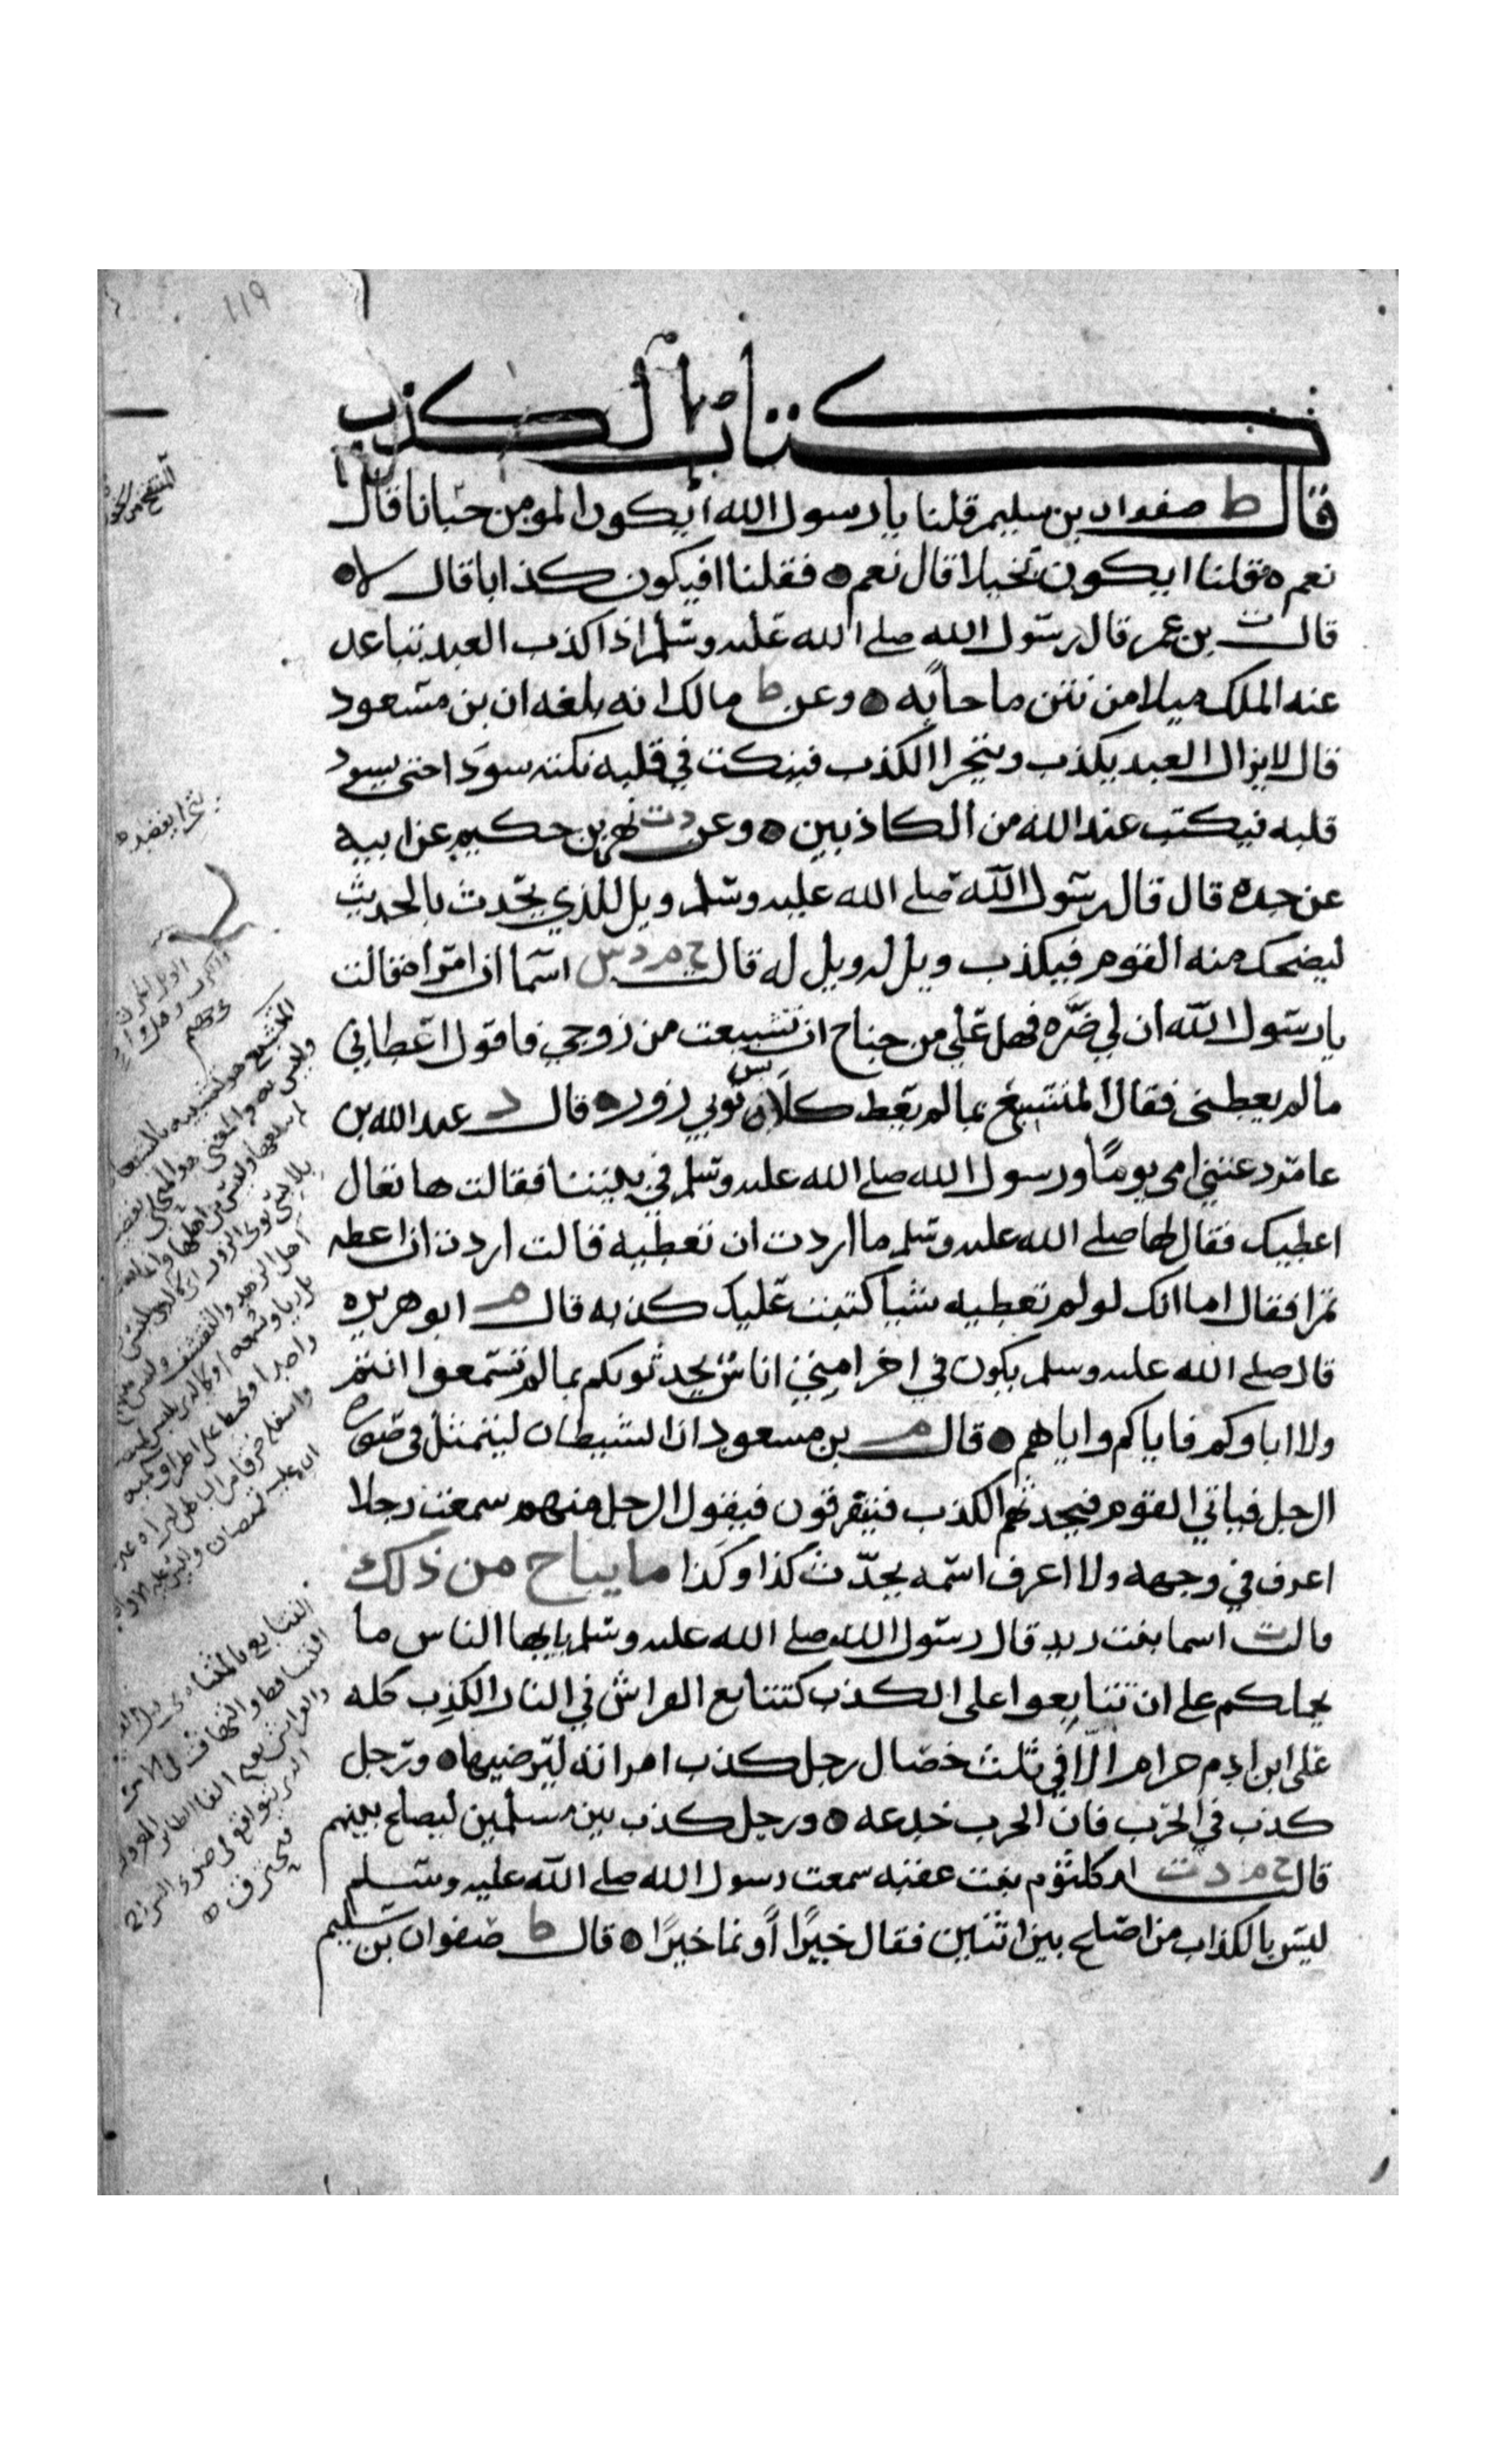 ١١٩
كتاب الكذب
قال ط صفوان بن سليم قلنا يا رسول الله ايكون المومن جبانا قال
نعم ه فقلنا ايكون بخيلا قال نعم ه فقلنا افيكون كذابا قال لا ه
قال ت بن عمر قال رسول الله صلى الله عليه وسلم اذا كذب العبد تباعد
عنه الملك ميلا من نتن ما جا به ه وعن ط مالك انه بلغه ان بن مسعود
قال لا يزال العبد يكذب ويتحرا الكذب فينكت في قلبه نكتة سودا حتى يسود
قلبه فيكتب عند الله من الكاذبين ه وعن د ت بهز بن حكيم عن ابيه
عن جده قال قال رسول الله صلى الله عليه وسلم ويل للذي يحدث بالحديث
ليضحك منه القوم فيكذب ويل له ويل له قال خ م د س اسما ان امراة قالت
يا رسول الله ان لي ضرة فهل علي من جناح ان تشبعت من زوجي فاقول اعطاني
ما لم يعطني فقال المتشبع بما لم يعط كلابس ثوبي زور ه قال د عبد الله بن
عامر دعتني امي يوما ورسول الله صلى الله عليه وسلم في بيتنا فقالت ها تعال
اعطيك فقال لها صلى الله عليه وسلم ما اردت ان تعطيه قالت اردت ان اعطه
تمرا فقال اما انك لو لم تعطيه شيا كتبت عليك كذبه قال م ابو هريره
قال صلى الله عليه وسلم يكون في اخر امتي اناس يحدثونكم بما لم تسمعوا انتم
ولا اباوكم فاياكم واياهم ه قال م بن مسعود ان الشيطان ليتمثل في صورة
الرجل فياتي القوم فيحدثهم الكذب فيتفرقون فيقول الرجل منهم سمعت رجلا
اعرف في وجهه ولا اعرف اسمه يحدث كذا وكذا ما يباح من ذلك
قالت ت اسما بنت يزيد قال رسول الله صلى الله عليه وسلم يا ايها الناس ما
يحملكم على ان تتايعوا على الكذب كتتايع الفراش في النار الكذب كله
على ابن ادم حرام الا في ثلث خصال رجل كذب امراته ليرضيها ه ورجل
كذب في الحرب فان الحرب خدعه ه ورجل كذب بين مسلمين ليصلح بينهم
قالت خ م د ت ام كلثوم بنت عقبه سمعت رسول الله صلى الله عليه وسلم
ليس بالكذاب من اصلح بين اثنين فقال خيرا او نما خيرا ه قال ط صفوان بن سليم
المتشبع هو المتشبه بالشبعان
وليس به
التتايع بالمثناة
التساقط والتهافت في الامر
والفراش بفتح الفا الطائر المعروف
الذي يتواقع في ضوء السراج
فيحترق ه